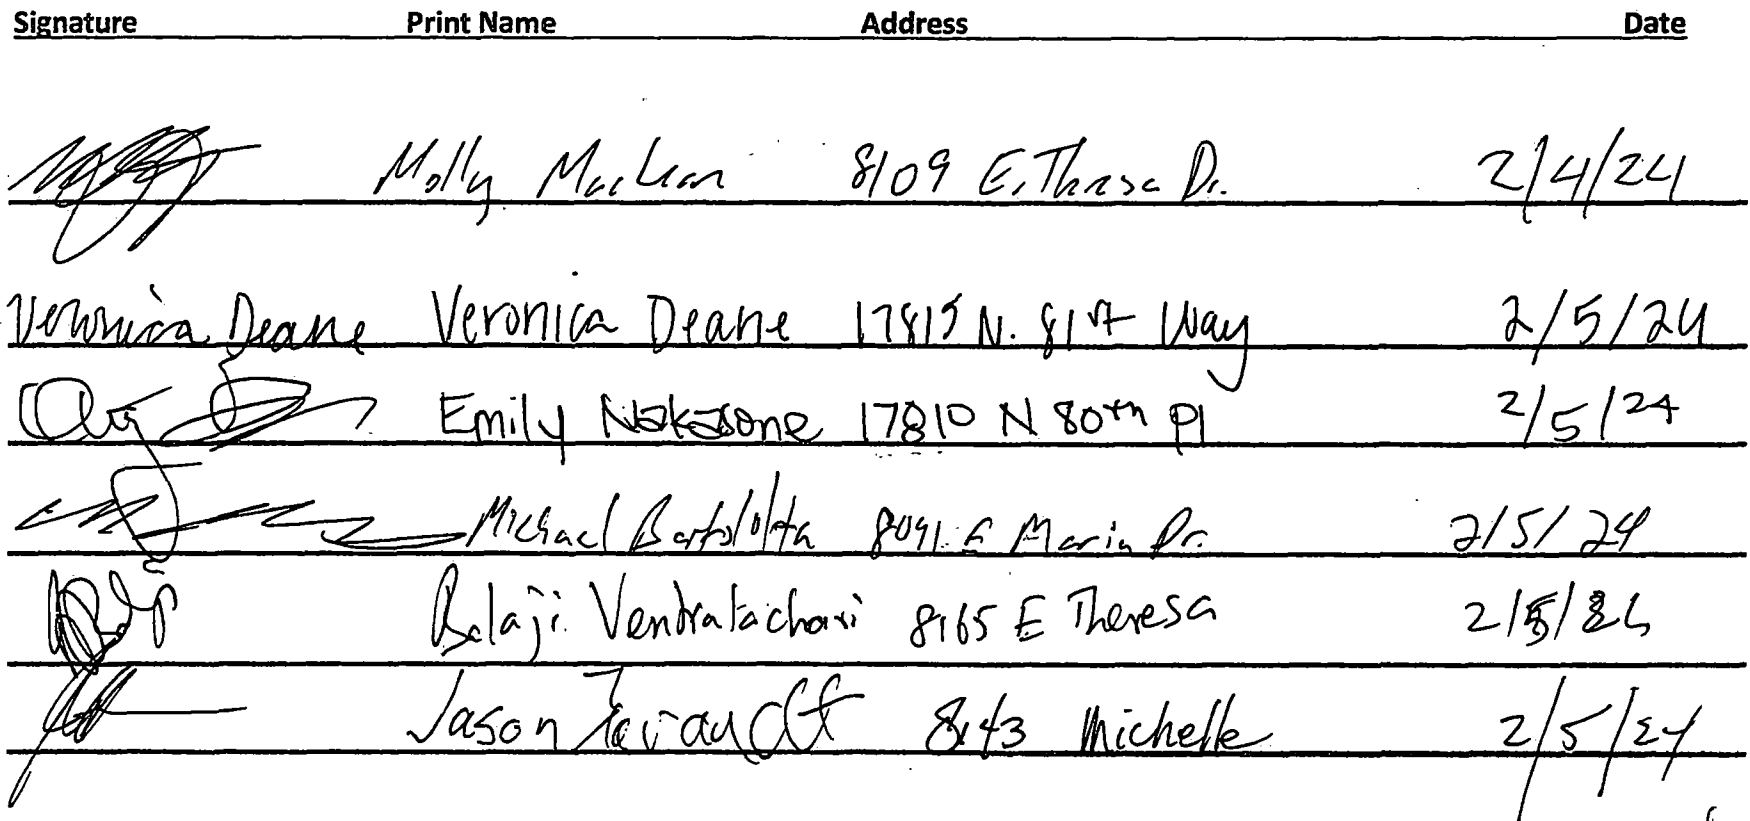 Signature Print Name Address Date
Molly MacLean 8109 E. Theresa Dr. 2/4/24
Veronica Deane Veronica Deane 17815 N. 81st Way 2/5/24
Emily Nakasone 17810 N 80th Pl 2/5/24
Michael Bartolotta 8091 E Maria Dr. 2/5/24
Balaji Venkatachari 8165 E Theresa 2/5/
Jason 8143 Michelle 2/5/24